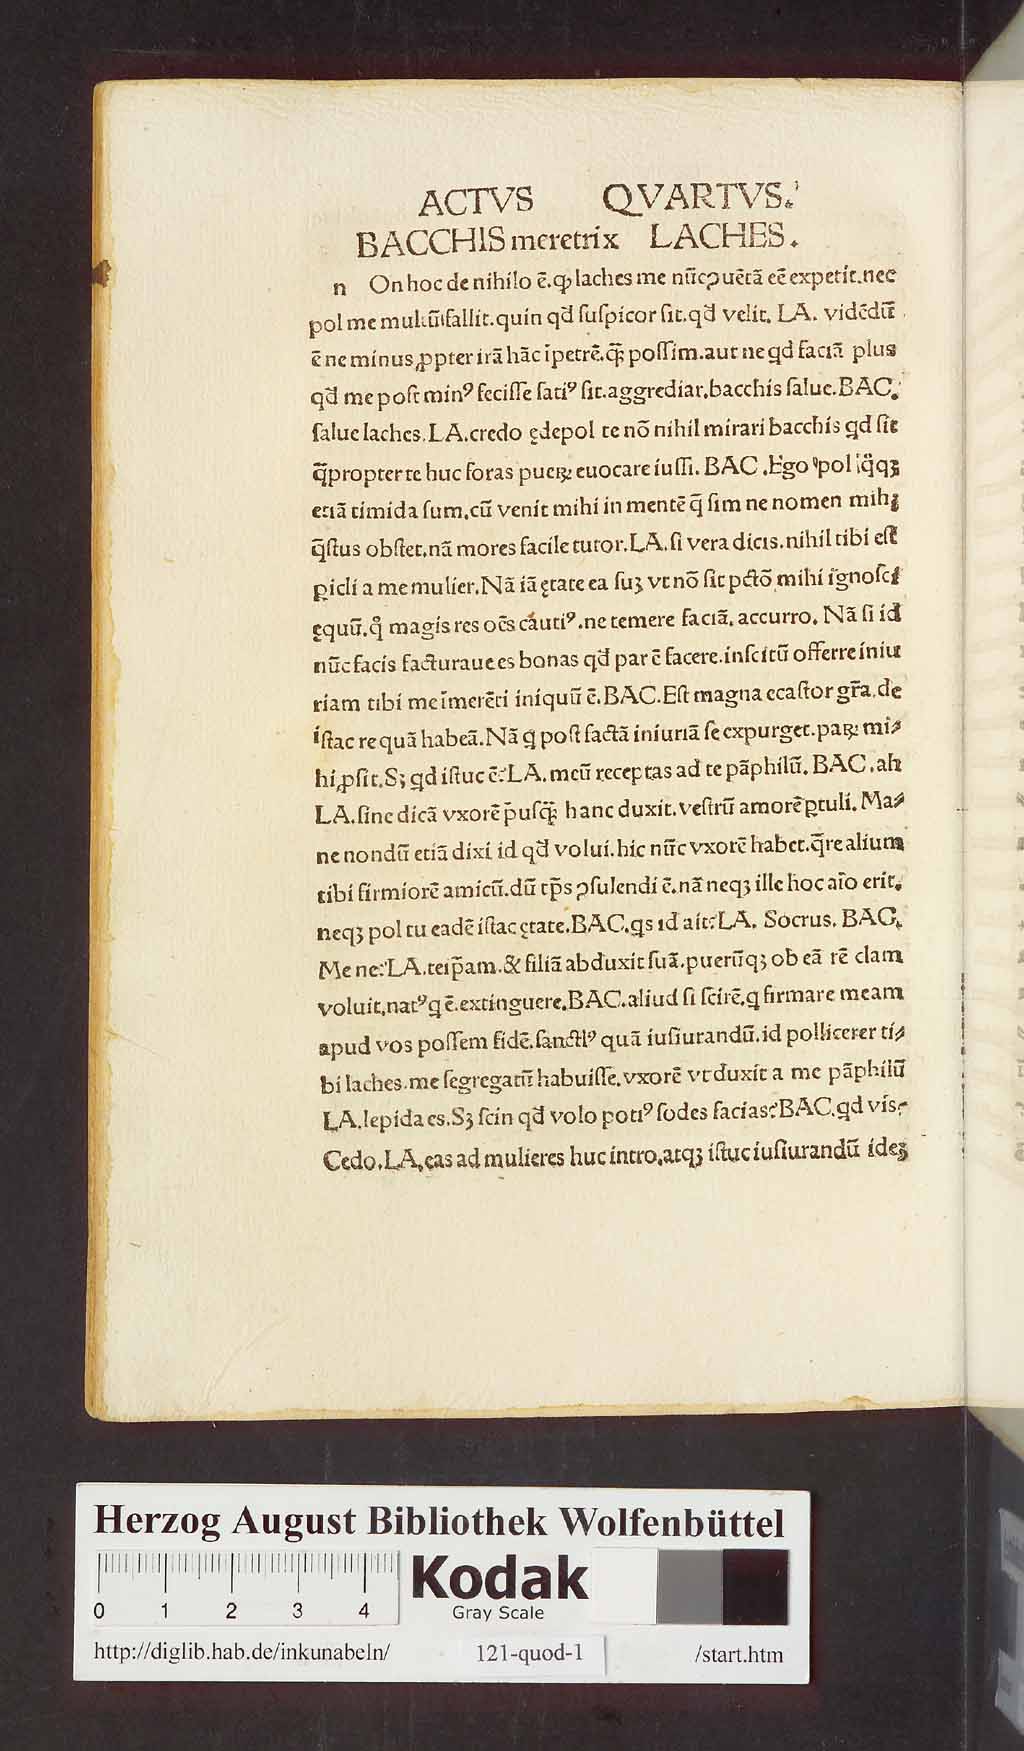 ACTVS QVARTVS.
BACCHIS meretrix LACHES.
n On hoc de nihilo ē. ꝙ laches me nūc ꝯuētā eē expetit. nec
pol me multū fallit. quin qđ suspicor sit. qđ velit. LA. vidēdū
ē ne minus ꝓpter irā hāc īpetrē. q̄ꝫ possim. aut ne qd faciā plus
qđ me post minꝰ fecisse satiꝰ sit. aggrediar. bacchis salue. BAC.
salue laches. LA. credo ędepol te nō nihil mirari bacchis qd sit
q̄propter te huc foras pueꝝ euocare iussi. BAC. Ego pol q̄qꝫ
etiā timida sum. cū venit mihi in mentē q̄ sim ne nomen mihi
q̄stus obstet. nā mores facile tutor. LA. si vera dicis. nihil tibi est
ꝑicli a me mulier. Nā iā ętate ea suꝫ vt nō sit pctō mihi ignosci
ęquū. qͦ magis res oēs cautiꝰ. ne temere faciā. accurro. Nā si id
nūc facis facturaue es bonas qđ par ē facere. inscitū offerre iniu
riam tibi me īmerēti iniquū ē. BAC. Est magna ecastor gr̄a. de
istac re quā habeā. Nā q post factā iniuriā se expurget. paꝝ mi⸗
hi ꝓsit. Sꝫ qd istuc ē? LA. meū receptas ad te pāphilū. BAC. ah
LA. sine dicā vxorē p̄usq̄ꝫ hanc duxit. vestrū amorē ꝑtuli. Ma⸗
ne nondū etiā dixi id qđ volui. hic nūc vxorē habet. q̄re alium
tibi firmiorē amicū. dū tp̄s ꝯsulendi ē. nā neqꝫ ille hoc aīo erit.
neqꝫ pol tu eadē istac ętate. BAC. qs id ait? LA. Socrus. BAC.
Me ne? LA. teip̄am. & filiā abduxit suā. puerūqꝫ ob eā rē clam
voluit. natꝰ q ē. extinguere. BAC. aliud si scirē. q firmare meam
apud vos possem fidē. sanctiꝰ quā iusiurandū. id pollicerer ti⸗
bi laches. me segregatū habuisse. vxorē vt duxit a me pāphilū
LA. lepida es. Sꝫ scin qđ volo potiꝰ sodes facias? BAC. qd vis?
Cedo. LA. eas ad mulieres huc intro. atqꝫ istuc iusiurandū ideꝫ
Herzog August Bibliothek Wolfenbüttel
0 1 2 3 4
Kodak
Gray Scale
http://diglib.hab.de/inkunabeln/ 121-quod-1 /start.htm